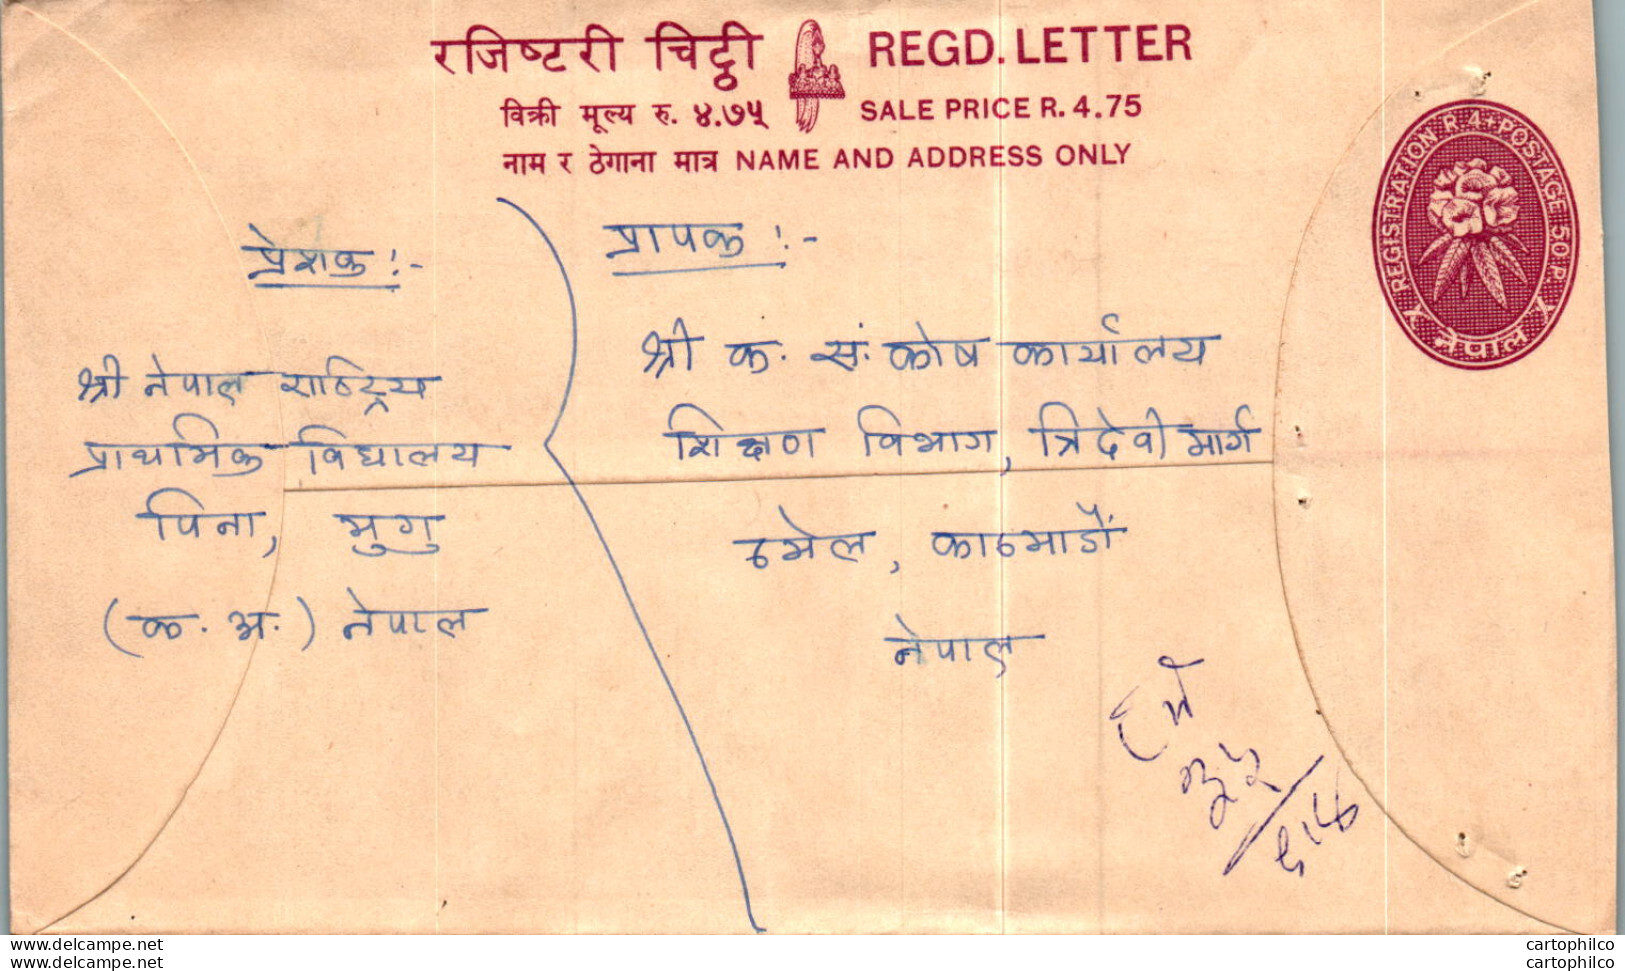 रजिष्टरी चिट्ठी REGD. LETTER
विक्री मूल्य रु. ४.७५ SALE PRICE R. 4.75
नाम र ठेगाना मात्र NAME AND ADDRESS ONLY
REGISTRATION R.4+POSTAGE 50 P.
नेपाल
प्रेशक :-
श्री नेपाल राष्ट्रिय
प्राथमिक विद्यालय
पिना, मुगु
(क. अ.) नेपाल
प्रापक :-
श्री क. सं. कोष कार्यालय
शिक्षण विभाग, त्रिदेवी मार्ग
ठमेल, काठमाडौं
नेपाल
www.delcampe.net
www.delcampe.net
cartophilco
cartophilco